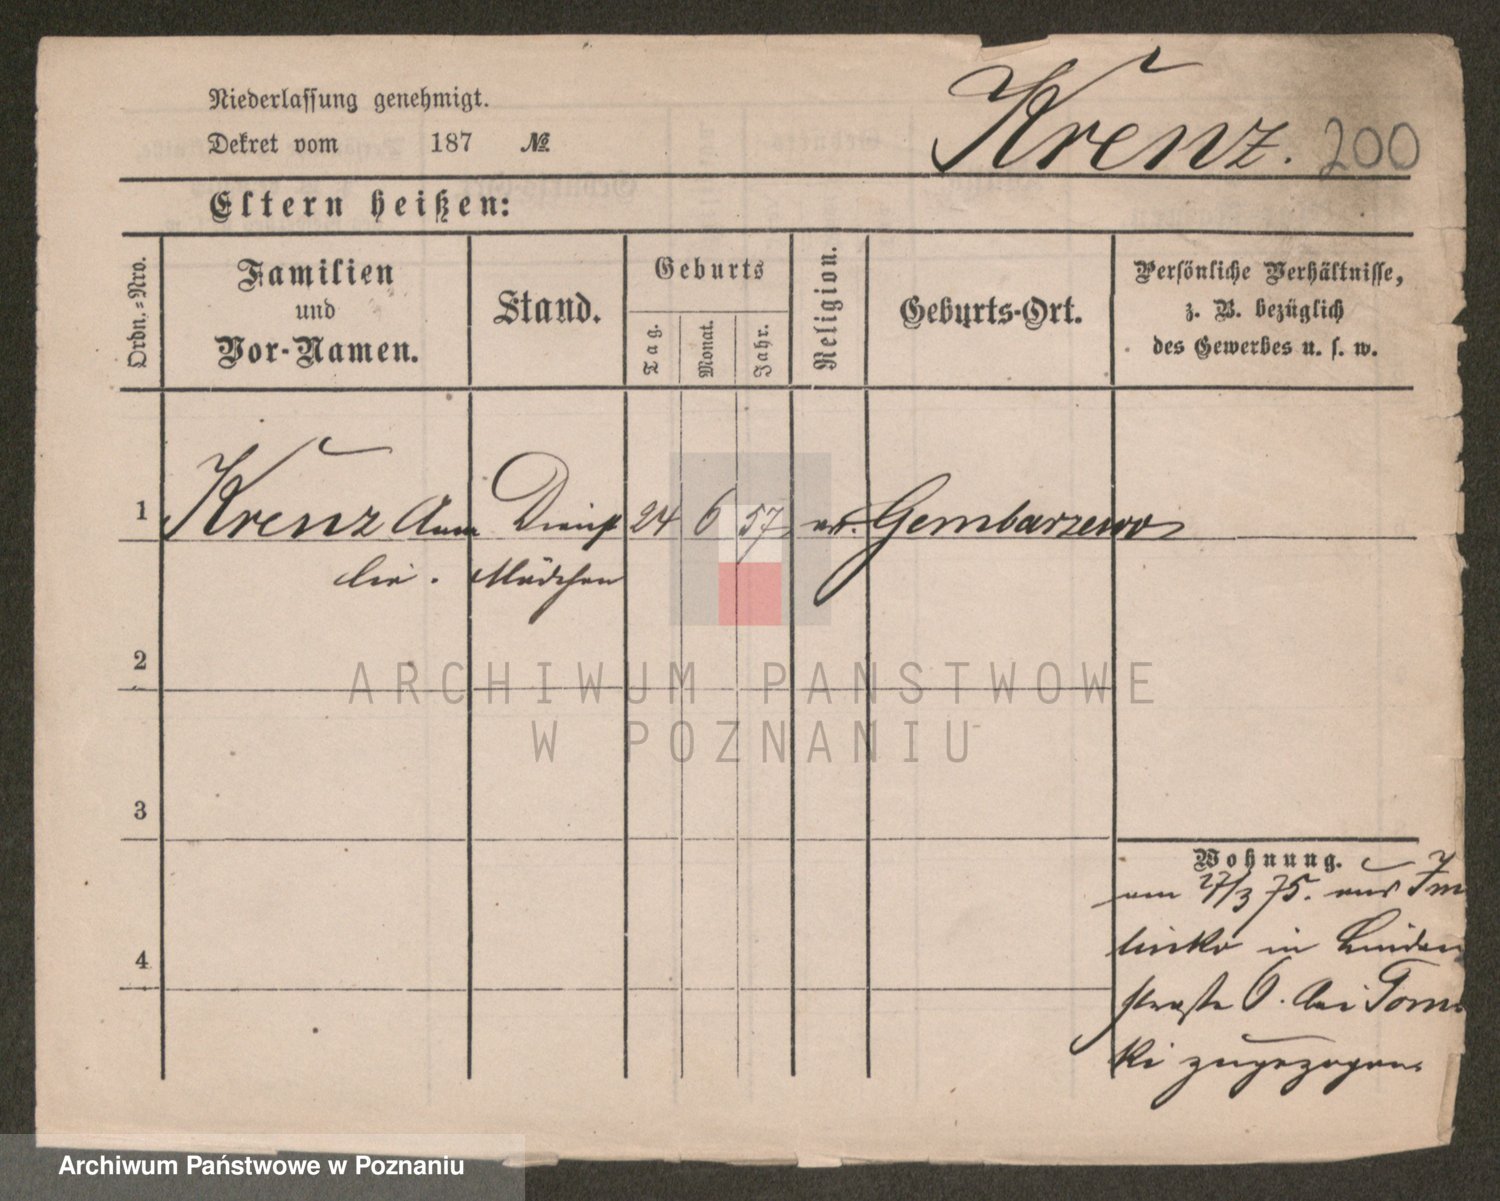 Niederlassung genehmigt.
Dekret vom 187 №
Krenz. 200
Eltern heißen:
Ordn.-Nro.
Familien und Vor-Namen.
Stand.
Geburts
Tag.
Monat.
Jahr.
Religion.
Geburts-Ort.
Persönliche Verhältnisse,
z. B. bezüglich
des Gewerbes u. s. w.
1 Krenz Dienst 24 6 57 Gembarzewo
Mädchen
2
3
4
Wohnung.
am 27/3 75. aus
in Linden
straße 6. bei Toms
ki zugezogen.
ARCHIWUM PANSTWOWE
W POZNANIU
Archiwum Państwowe w Poznaniu